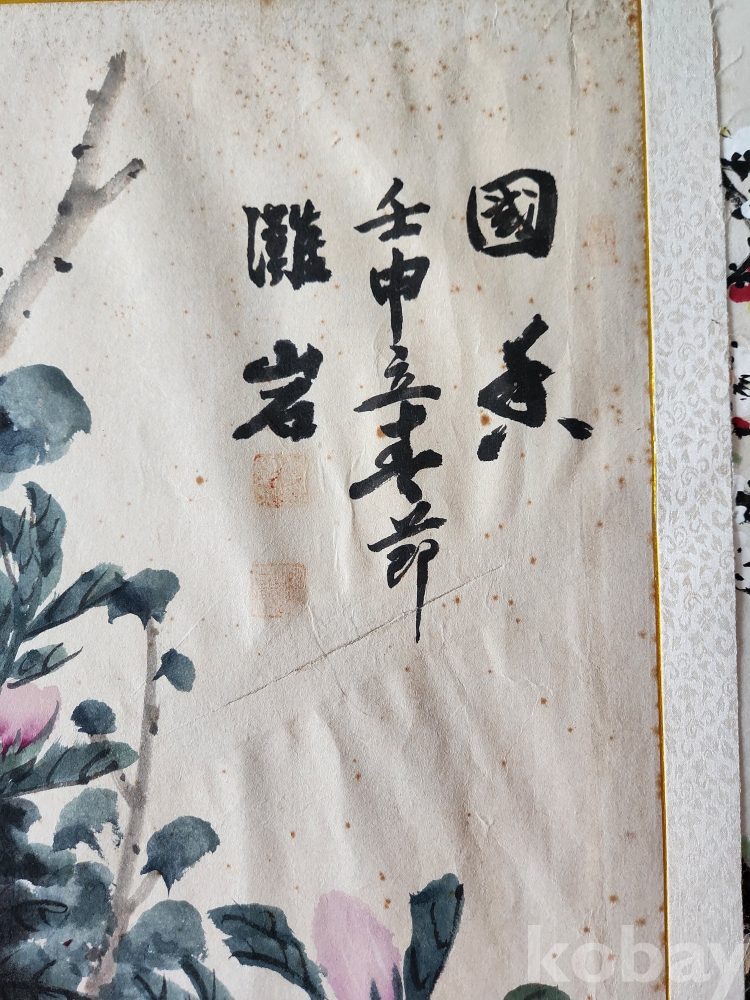 國香
壬申立春節
灘岩
kobay